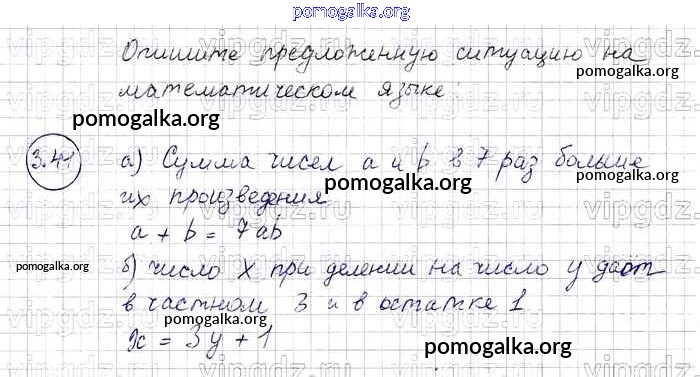 pomogalka.org
Опишите предложенную ситуацию на
pomogalka.org
математическом языке:
pomogalka.org
3.41 а) Сумма чисел a и b в 7 раз больше
pomogalka.org
их произведения
a + b = 7ab
pomogalka.org
б) число x при делении на число y даёт
в частном 3 и в остатке 1
pomogalka.org
x = 3y + 1
pomogalka.org
vipgdz.ru